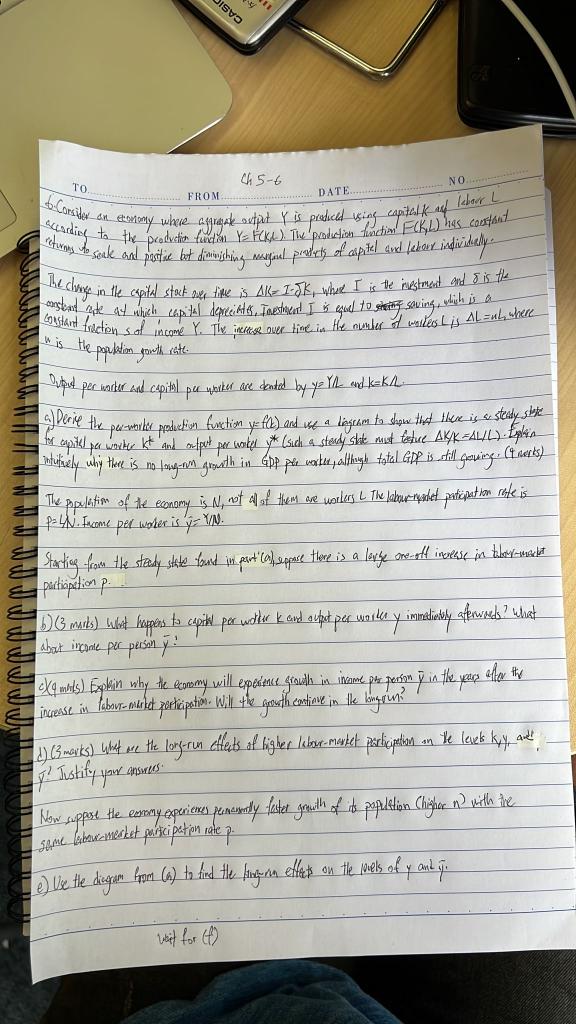 CASIO
Ch 5-6
TO FROM DATE NO.
6. Consider an economy where aggregate output Y is produced using capital K and labour L
according to the production function Y=F(K,L). The production function F(K,L) has constant
returns to scale and positive but diminishing marginal products of capital and labour individually.
The change in the capital stock over time is ΔK= I-δK, where I is the investment and δ is the
constant rate at which capital depreciates. Investment I is equal to saving, which is a
constant fraction s of income Y. The increase over time in the number of workers L is ΔL=nL, where
n is the population growth rate.
Output per worker and capital per worker are denoted by y=Y/L and k=K/L.
a) Derive the per-worker production function y=f(k) and use a diagram to show that there is a steady state
for capital per worker k* and output per worker y* (such a steady state must feature ΔK/K=ΔL/L). Explain
intuitively why there is no long-run growth in GDP per worker, although total GDP is still growing. (4 marks)
The population of the economy is N, not all of them are workers L. The labour-market participation rate is
p=L/N. Income per worker is ȳ=Y/N.
Starting from the steady state found in part (a), suppose there is a large one-off increase in labour-market
participation p.
b) (3 marks) What happens to capital per worker k and output per worker y immediately afterwards? What
about income per person ȳ?
c) (4 marks) Explain why the economy will experience growth in income per person ȳ in the years after the
increase in labour-market participation. Will the growth continue in the long run?
d) (3 marks) What are the long-run effects of higher labour-market participation on the levels k, y, and
ȳ? Justify your answers.
Now suppose the economy experiences permanently faster growth of its population (higher n) with the
same labour-market participation rate p.
e) Use the diagram from (a) to find the long-run effects on the levels of y and ȳ.
wait for (f)